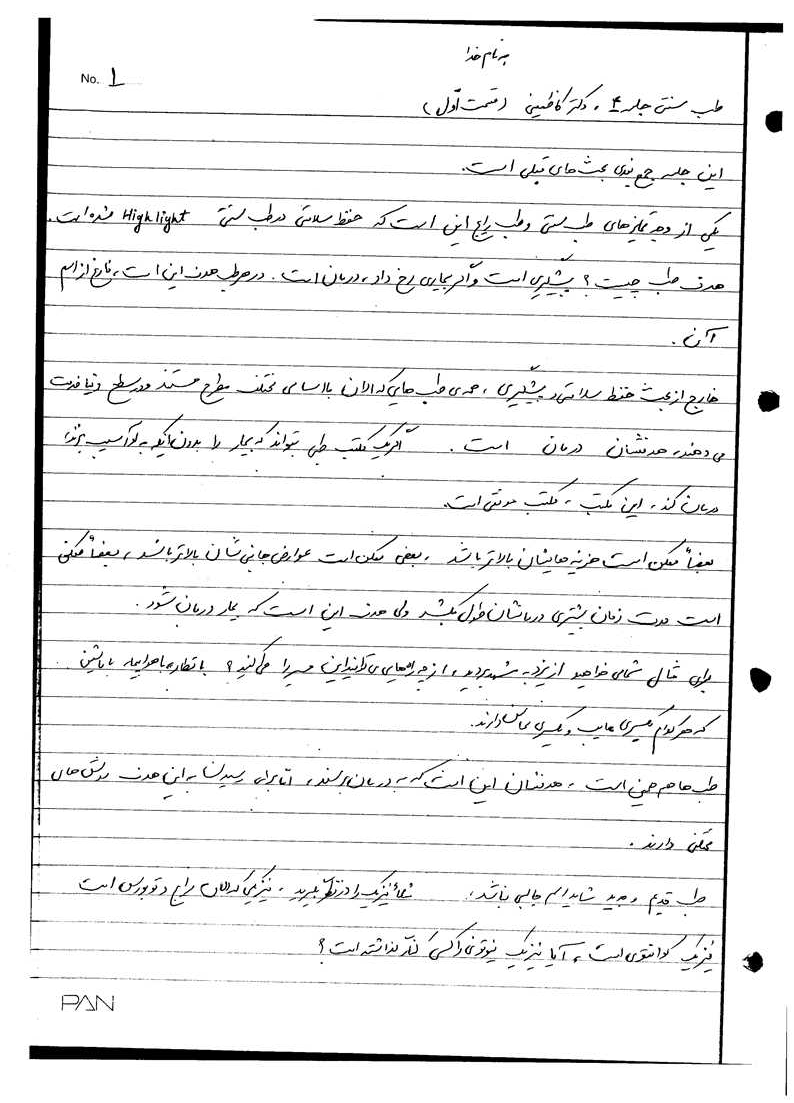 به نام خدا
No. 1
طب سنتی جلسه ۴ ، دکتر کاظمینی (قسمت اول)
این جلسه جمع بندی بحث های قبلی است.
یکی از وجه تمایزهای طب سنتی و طب رایج این است که حفظ سلامتی در طب سنتی Highlight شده است.
هدف طب چیست؟ پیشگیری است و اگر بیماری رخ داد، درمان است. در هر طب هدف این است، فارغ از اسم
آن.
خارج از بحث حفظ سلامتی و پیشگیری ، همه ی طب هایی که الان با اسامی مختلف مطرح هستند و در سطح دنیا خدمت
می دهند، هدفشان درمان است. اگر یک مکتب طبی بتواند که بیمار را بدون اینکه به او آسیب بزند،
درمان کند، این مکتب ، مکتب موفقی است.
بعضاً ممکن است هزینه هایشان بالاتر باشد ، بعضی ممکن است عوارض جانبی شان بالاتر باشد ، بعضاً ممکن
است مدت زمان بیشتری درمانشان طول بکشد ولی هدف این است که بیمار درمان شود.
برای مثال شما می خواهید از یزد به مشهد بروید ، از چه راههایی می توانید این مسیر را طی کنید؟ با قطار، با هواپیما، با ماشین
که هر کدام یکسری معایب و یکسری محاسن دارند.
طب ها هم همین است ، هدفشان این است که به درمان برسند، اما برای رسیدن به این هدف روش های
مختلفی دارند.
طب قدیم و جدید شاید اسم جالبی نباشد، شما فیزیک را در نظر بگیرید ، فیزیکی که الان رایج و تو بورس است
فیزیک کوانتومی است ، آیا فیزیک نیوتونی را کسی کنار گذاشته است؟
PAN